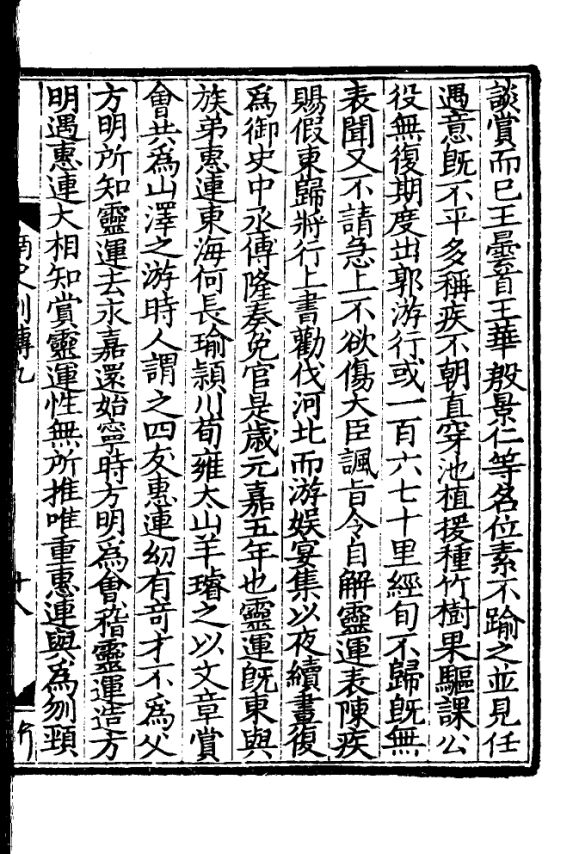 談賞而已王曇首王華殷景仁等名位素不踰之並見任
遇意旣不平多稱疾不朝直穿池植援種竹樹果驅課公
役無復期度出郭游行或一百六七十里經旬不歸旣無
表聞又不請急上不欲傷大臣諷旨令自解靈運表陳疾
賜假東歸將行上書勸伐河北而游娱宴集以夜續晝復
爲御史中丞傅隆奏免官是歲元嘉五年也靈運旣東與
族弟惠連東海何長瑜潁川荀雍太山羊璿之以文章賞
會共爲山澤之游時人謂之四友惠連幼有奇才不爲父
方明所知靈運去永嘉還始寧時方明爲會稽靈運造方
明遇惠連大相知賞靈運性無所推唯重惠連與爲刎頸
南史列傳九
十八